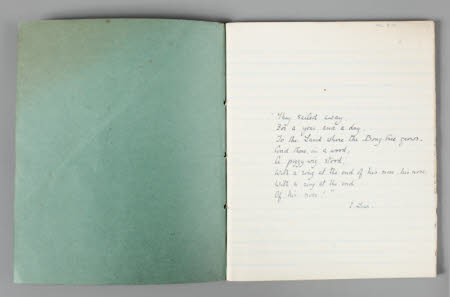 "They sailed away
For a year and a day
To the Land where the Bong tree grows.
And there in a wood,
A piggy-wig stood,
With a ring at the end of his nose his nose
With a ring at the end
Of his nose!"